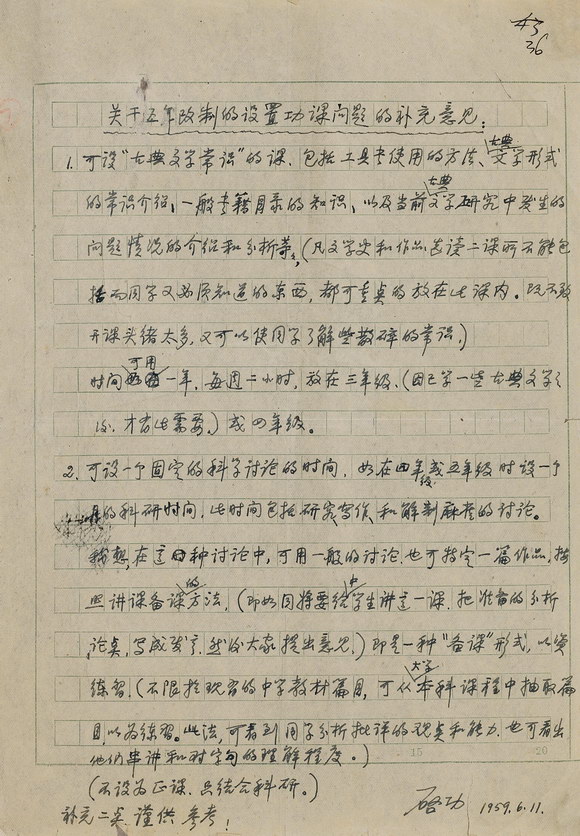 43
36
关于五年改制的设置功课问题的补充意见：
1. 可设“古典文学常识”的课，包括工具书使用的方法、古典文学形式
的常识介绍，一般书籍目录的知识，以及当前古典文学研究中发生的
问题情况的介绍和分析等，（凡文学史和作品选读二课所不能包
括而同学又必须知道的东西，都可重点的放在此课内。既不致
开课头绪太多，又可以使同学了解些散碎的常识。）
时间可用一年，每週二小时，放在三年级，（因已学一些古典文学
后，才有此需要。）或四年级。
2. 可设一个固定的科学讨论的时间，如在四年级或五年级时设一个
的科研时间，此时间包括研究写作和解剖麻雀的讨论。
我想，在这种讨论中，可用一般的讨论，也可特定一篇作品，按
照讲课备课的方法，（即如同将要给中学生讲这一课，把准备的分析
论点，写成发言，然后大家提出意见。）即是一种“备课”形式，以资
练习，（不限于现有的中学教材篇目，可从大学本科课程中抽取篇
目，以为练习。此法，可看到同学分析批评的观点和能力，也可看出
他们串讲和对字句的理解程度。）
（不设为正课，只结合科研。）
补充二类，谨供参考！
启功 1959.6.11.
15 20